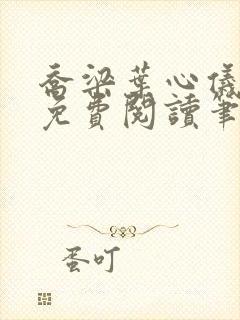 喬梁葉心儀
免費閱讀筆
蛋叮